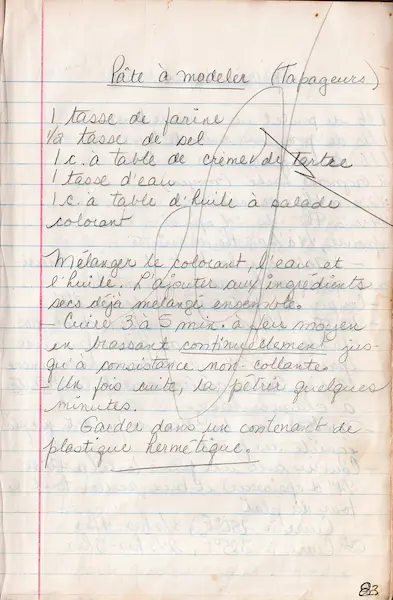 Pâte à modeler (Tapageurs)
1 tasse de farine
1/2 tasse de sel
1 c. à table de crème de tartre
1 tasse d'eau
1 c. à table d'huile à salade
colorant
Mélanger le colorant, l'eau et
l'huile. L'ajouter aux ingrédients
secs déjà mélangé ensemble.
- Cuire 3 à 5 min. à feu moyen
en brassant continuellement jus-
qu'à consistance non-collante.
- Un fois cuite, la pétrir quelques
minutes.
Garder dans un contenant de
plastique hermétique.
83